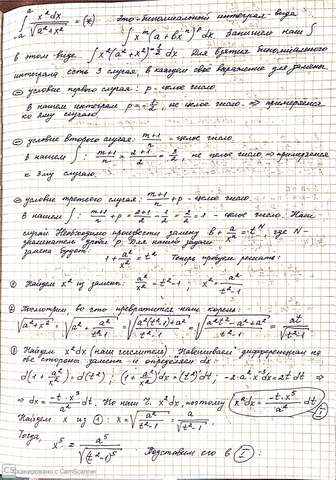 ∫ x²dx / √(a²+x²) = (*) Это - биномиальный интеграл вида
∫ xᵐ(a+bxⁿ)ᵖ dx Запишем наш ∫
в этом виде ∫ x²(a²+x²)^(-1/2) dx Для взятия биномиального
интеграла есть 3 случая, в каждом своё выражение для замены.
условие первого случая: p - целое число
В нашем интеграле p = -1/2, не целое число ⇒
к эту случаю
условие второго случая: (m+1)/n - целое число
В нашем ∫: (m+1)/n = (2+1)/2 = 3/2, не целое число ⇒
к эту случаю.
условие третьего случая: (m+1)/n + p - целое число.
В нашем ∫: (m+1)/n + p = (2+1)/2 - 1/2 = 2/2 = 1 - целое число. Наш
случай. Необходимо произвести замену b + a/xⁿ = tᴺ, где N -
знаменатель дроби p. Для нашей задачи
замена будет:
1 + a²/x² = t² Теперь
Найдём x² из замены: a²/x² = t²-1; x² = a²/(t²-1)
Посмотрим во что превратится наш корень:
√(a²+x²) = √(a² + a²/(t²-1)) = √((a²(t²-1)+a²)/(t²-1)) = √((a²t²-a²+a²)/(t²-1)) = at/√(t²-1)
Найдём x²dx (наш числитель). Навешиваем дифференциал на
обе стороны замены и определяем dx:
d(1+a²/x²) = d(t²); (1+a²/x²)'dx = (t²)'dt; -2·a²·x⁻³dx = 2t dt ⇒
⇒ dx = -t·x³/a² dt. Но нам ч. x²dx, поэтому x²dx = -t·x⁵/a² dt I
Найдём x из (1): x = √(a²/(t²-1)) = a/√(t²-1)
Тогда,
x⁵ = a⁵/√(t²-1)⁵ Подставим его в I:
CS Сканировано с CamScanner